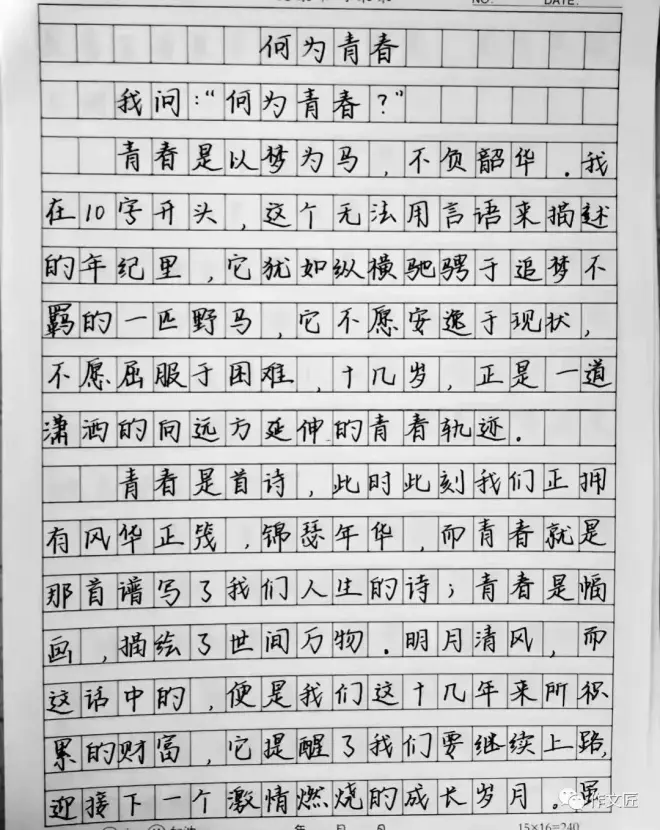 NO.
DATE:
何为青春
我问:“何为青春?”
青春是以梦为马,不负韶华.我
在10字开头,这个无法用言语来描述
的年纪里,它犹如纵横驰骋于追梦不
羁的一匹野马,它不愿安逸于现状,
不愿屈服于困难,十几岁,正是一道
潇洒的向远方延伸的青春轨迹.
青春是首诗,此时此刻我们正拥
有风华正茂,锦瑟年华,而青春就是
那首谱写了我们人生的诗;青春是幅
画,描绘了世间万物.明月清风,而
这话中的,便是我们这十几年来所积
累的财富,它提醒了我们要继续上路,
迎接下一个激情燃烧的成长岁月.虽
作文匠
年 月 日
15×16=240